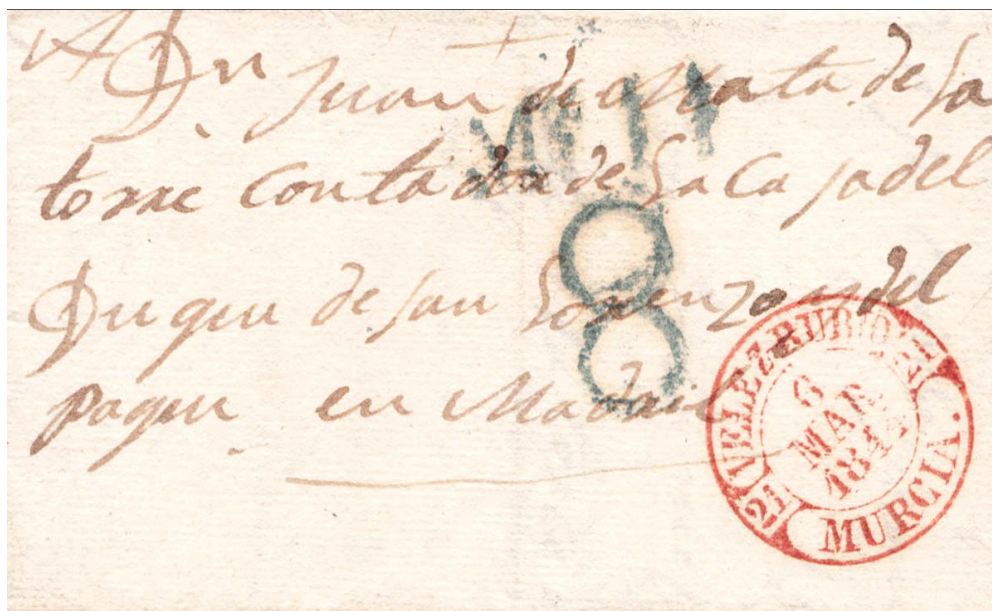 A
Dn Juan de Mata de la
torre contador de la Casa del
Duque de San Lorenzo y del
parque en Madrid
8
VELEZ-RUBIO
6
MAR
184
MURCIA.